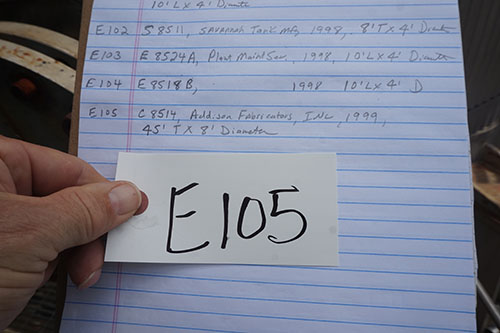 10'L x 4' Diameter
E102 S8511, Savannah Tank Mfg 1998, 8'T x 4' Diameter
E103 E8524A, Plant Maint Ser, 1998, 10'L x 4' Diameter
E104 E8518B, 1998 10'L x 4' D
E105 C8514, Addison Fabricators, Inc, 1999,
45' T x 8' Diameter
E105